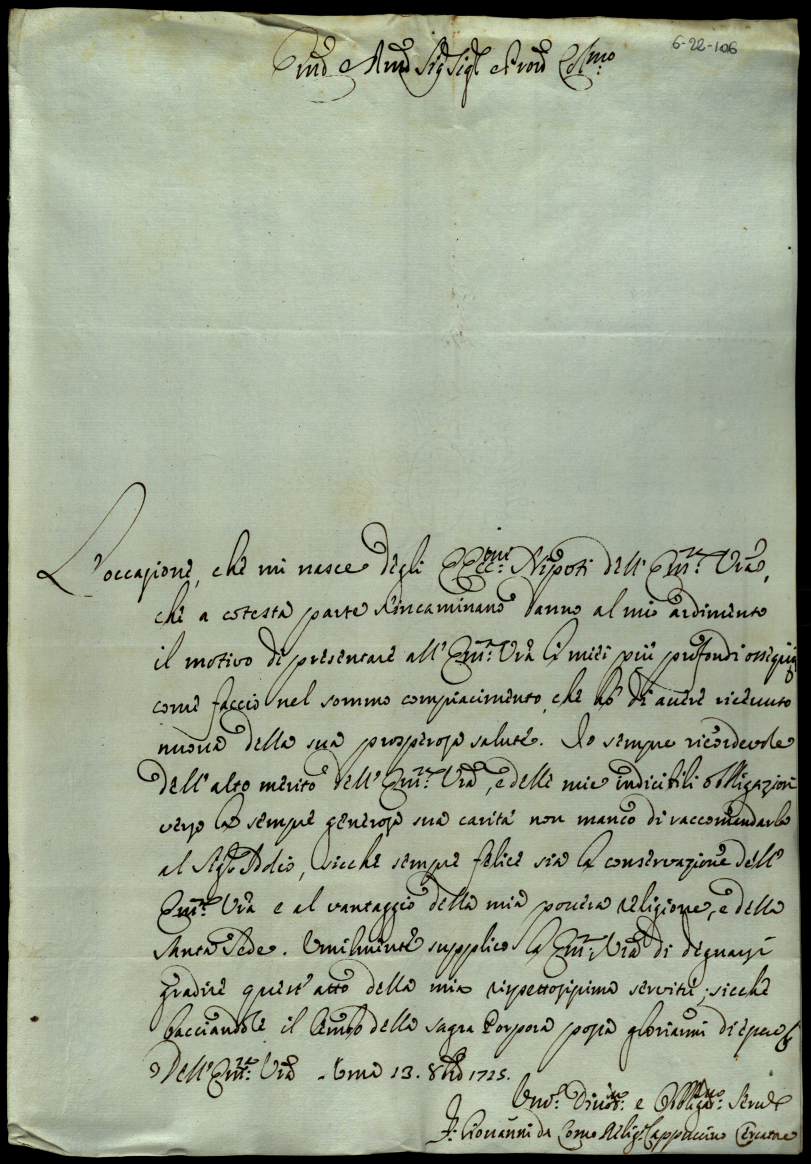 6-22-106
Em͞o e Rm͞o Sig. Sig.e e Pron͞e Col.mo
L'occasione, che mi nasce degli Ecc.mi Nipoti dell'Em.za Vr͞a,
che a cotesta parte s'incaminano danno al mio ardimento
il motivo di presentare all'Em.za Vr͞a li miei più profondi ossequij
come faccio nel sommo compiacimento, che hò di avere ricevuto
nuova della sua prosperosa salute. Io sempre ricordevole
dell'alto merito dell'Em.za Vr͞a, e delle mie indicibili obbligazioni
verso la sempre generosa sua carità non manco di raccomandarla
al Sig.re Iddio, sicche sempre felice sia la conservazione dell'
Em.za Vr͞a e al vantaggio della mia povera religione, e della
Santa Sede. Umilmente supplico la Em.za Vr͞a di degnarsi
gradire quest'atto della mia rispettosissima servitù, sicche
bacciandole il lembo della sagra Porpora possa gloriarmi di essere
Dell'Em.za Vr͞a 13. 8bre 1725.
Um.o Divot.mo e Obblig.mo Serv.e
F. Giovanni da Como Relig. Cappuccino